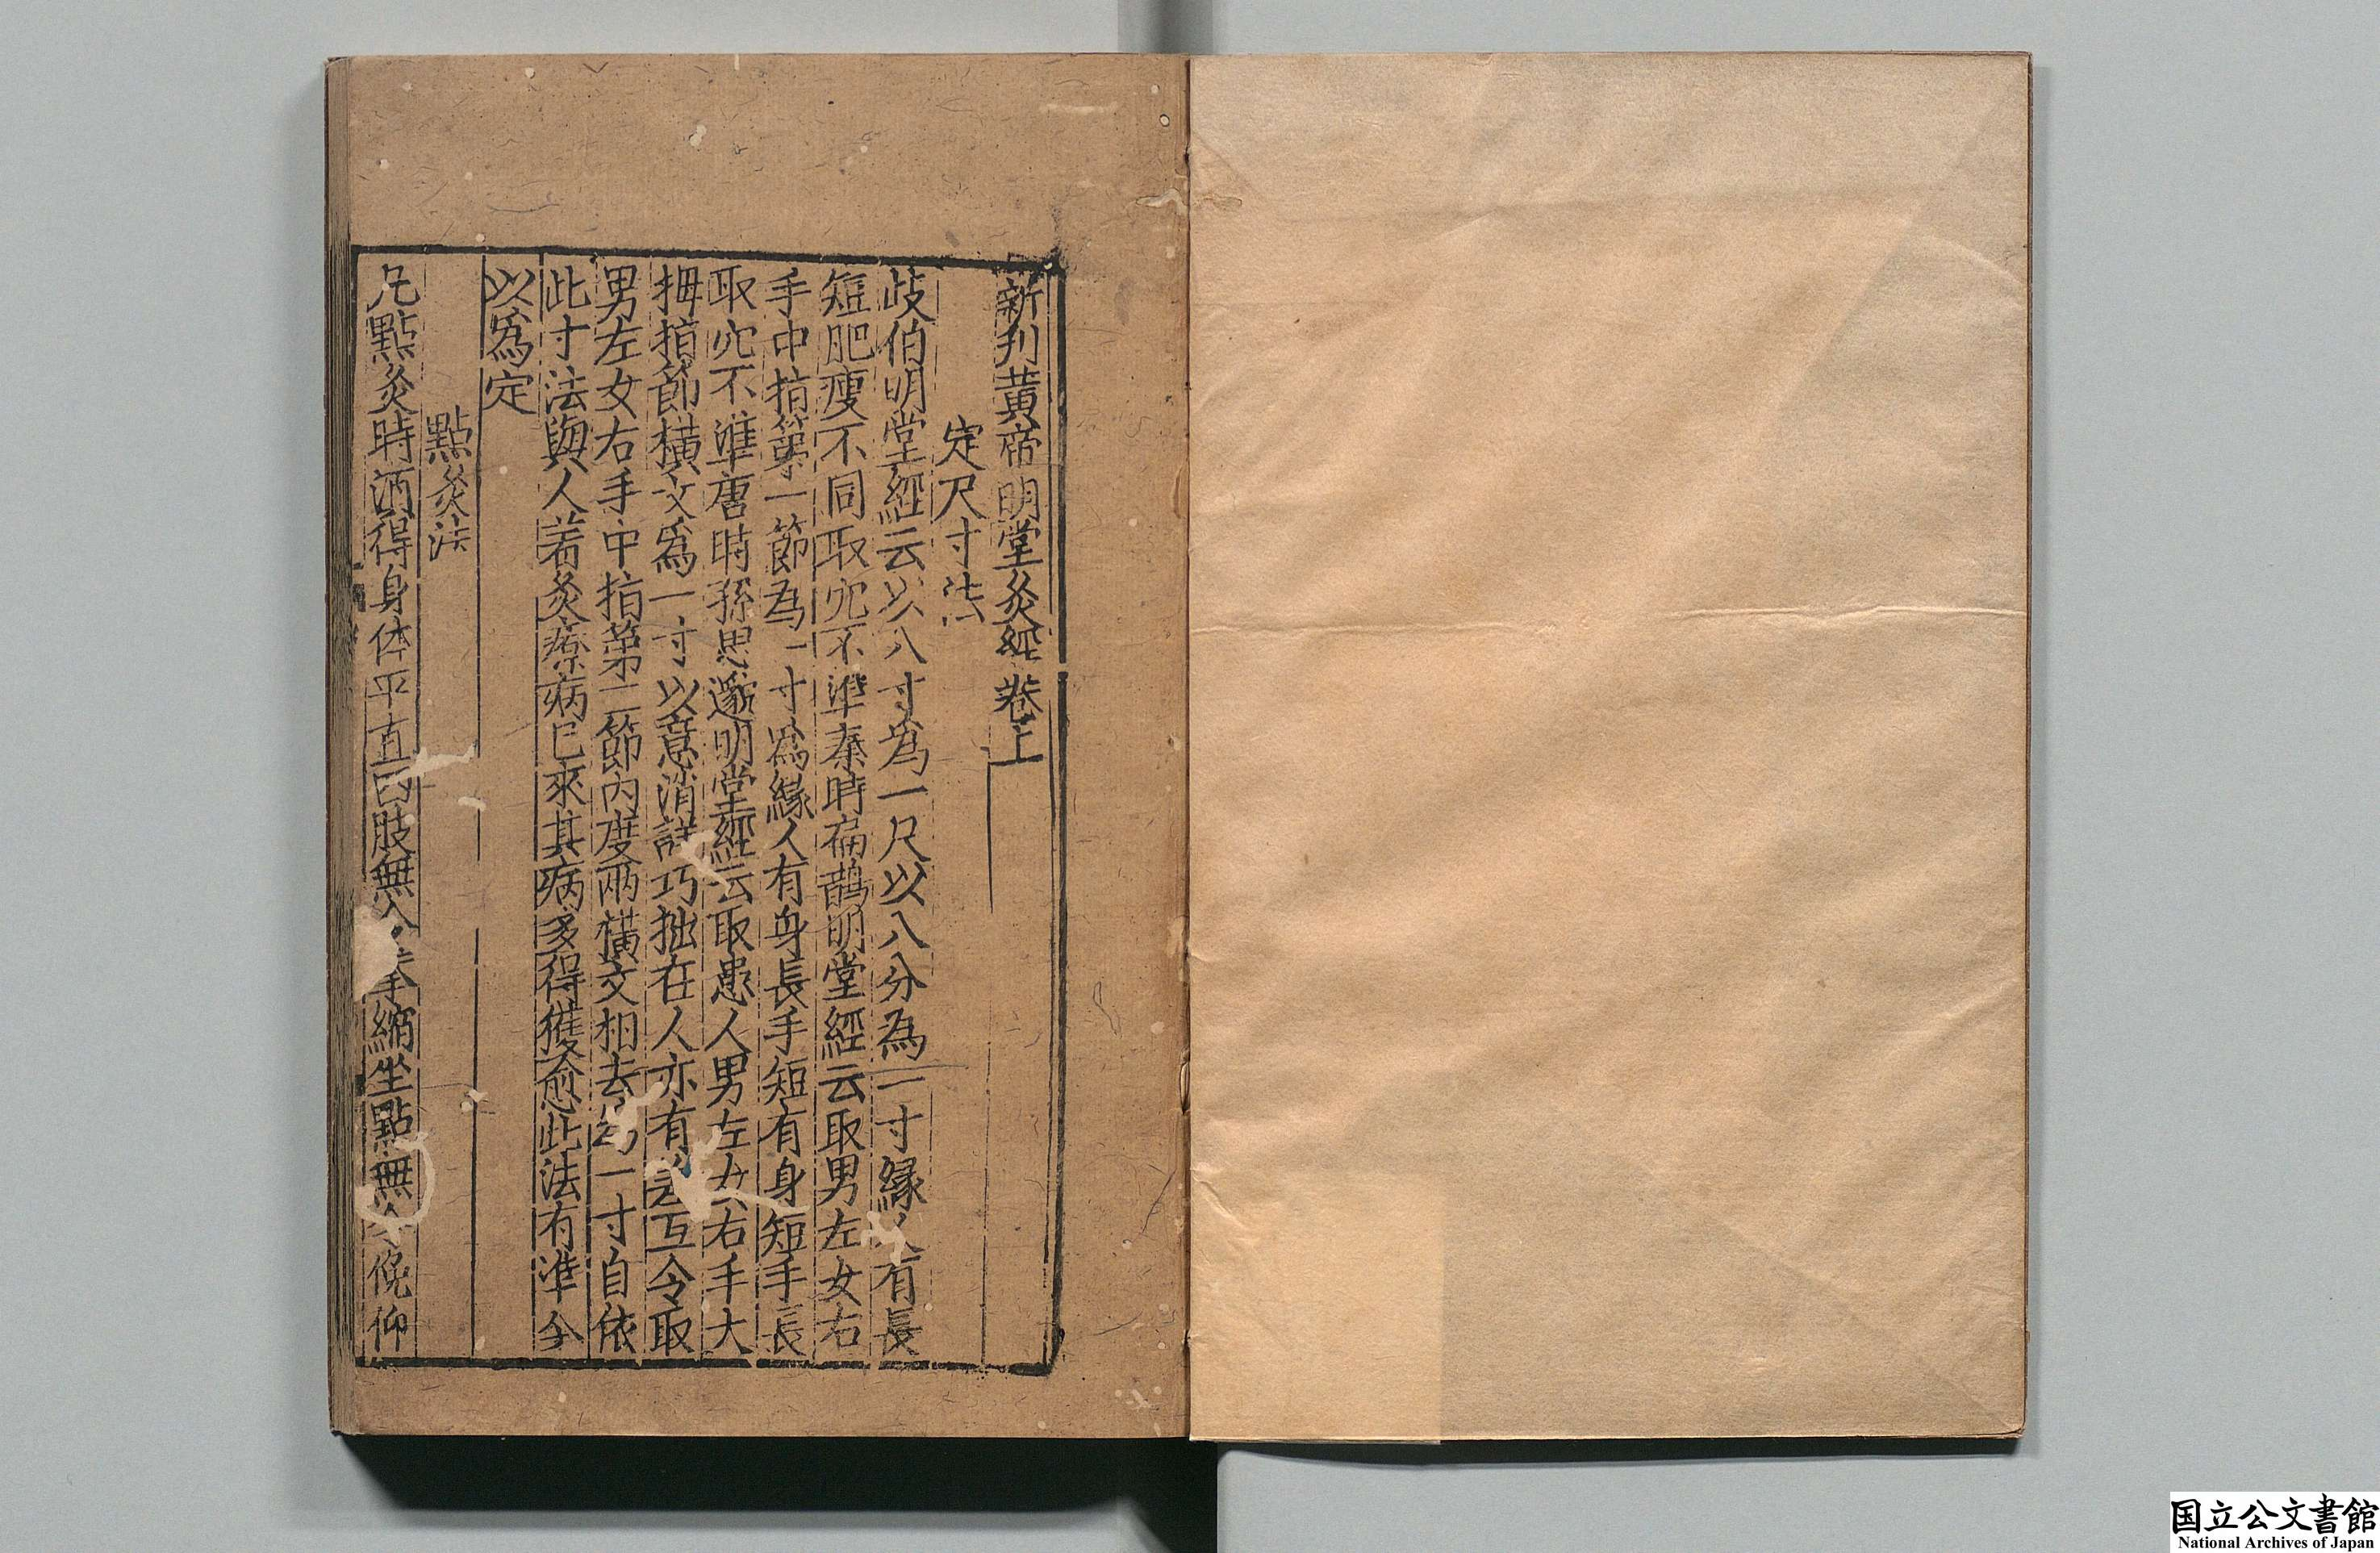 新刋黃帝明堂灸經卷上
定尺寸法
歧伯明堂經云以八寸為一尺以八分為一寸緣人有長
短肥瘦不同取穴不準秦時扁鵲明堂經云取男左女右
手中指第一節為一寸爲緣人有身長手短有身短手長
取穴不準唐時孫思邈明堂經云取患人男左女右手大
拇指節橫文爲一寸以意消詳巧拙在人亦有差互今取
男左女右手中指第二節內度兩橫文相去為一寸自依
此寸法與人着灸療病已來其病多得獲愈此法有準今
以爲定
點灸法
凡點灸時須得身体平直四肢無令拳縮坐點無令俛仰
国立公文書館
National Archives of Japan